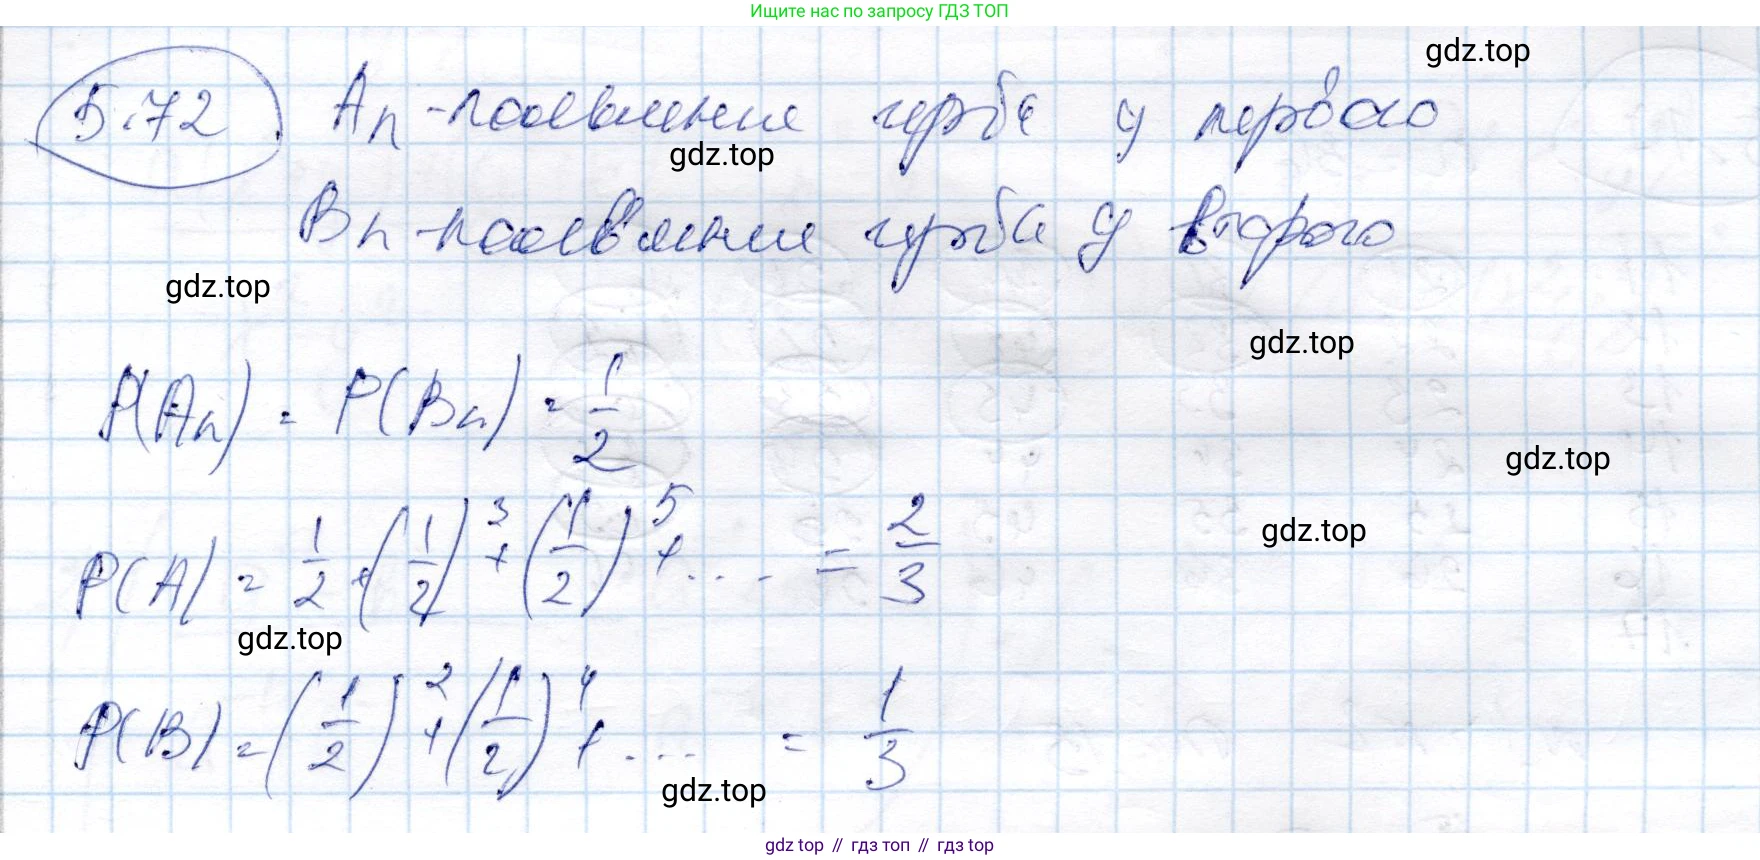 Ищите нас по запросу ГДЗ ТОП
gdz.top
5.72 Aп - появление герба у первого
gdz.top
Bп - появление герба у второго
gdz.top
gdz.top
P(Aп) = P(Bп) = 1/2
gdz.top
gdz.top
P(A) = 1/2 + (1/2)^3 + (1/2)^5 + ... = 2/3
gdz.top
P(B) = (1/2)^2 + (1/2)^4 + ... = 1/3
gdz.top
gdz top // гдз топ // гдз top